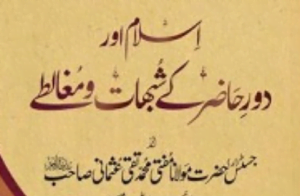 اِسلام اور
دورِ حاضر کے شبہات و مغالطے
از
جسٹس (ر) حضرت مولانا مفتی محمد تقی عثمانی صاحب